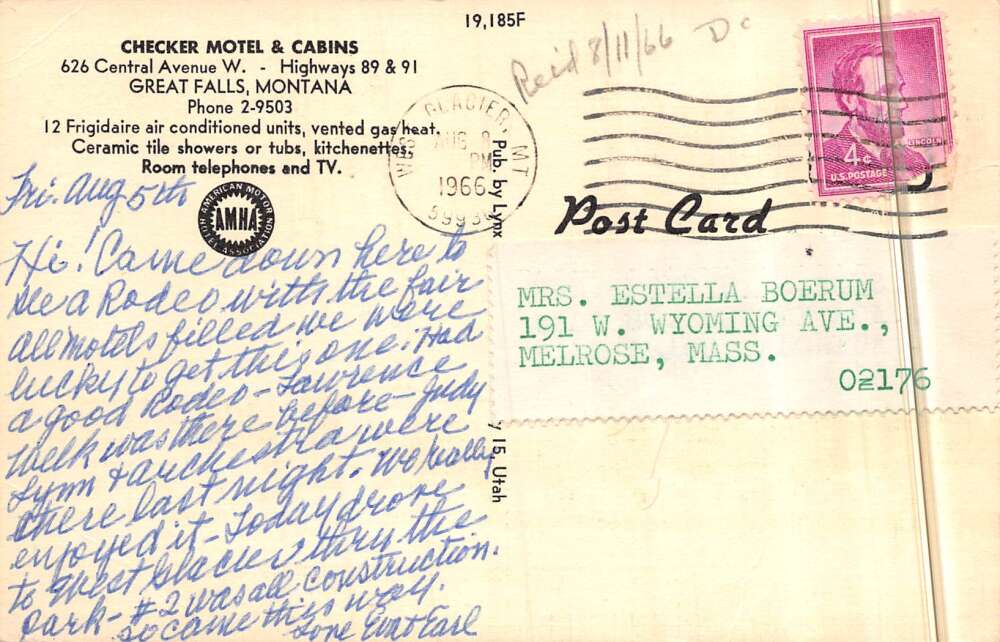 19,185F
CHECKER MOTEL & CABINS
626 Central Avenue W. - Highways 89 & 91
GREAT FALLS, MONTANA
Phone 2-9503
12 Frigidaire air conditioned units, vented gas heat.
Ceramic tile showers or tubs, kitchenettes.
Room telephones and TV.
AMERICAN MOTOR
HOTEL ASSOCIATION
AMHA
Fri. Aug 5th
Hi! Came down here to
see a Rodeo with the fair
all motels filled we were
lucky to get this one. Had
a good Rodeo - Lawrence
Welk was there before - Judy
Lynn + orchestra were
there last night. We really
enjoyed it - Today drove
to West Glacier thru the
park - #2 was all construction.
so came this way.
Love Em & Earl
Pub. by Lynx
15, Utah
GLACIER, MT
AUG
PM
1966
Rec'd 8/11/66
LINCOLN
4c
U.S. POSTAGE
Post Card
MRS. ESTELLA BOERUM
191 W. WYOMING AVE.,
MELROSE, MASS.
02176